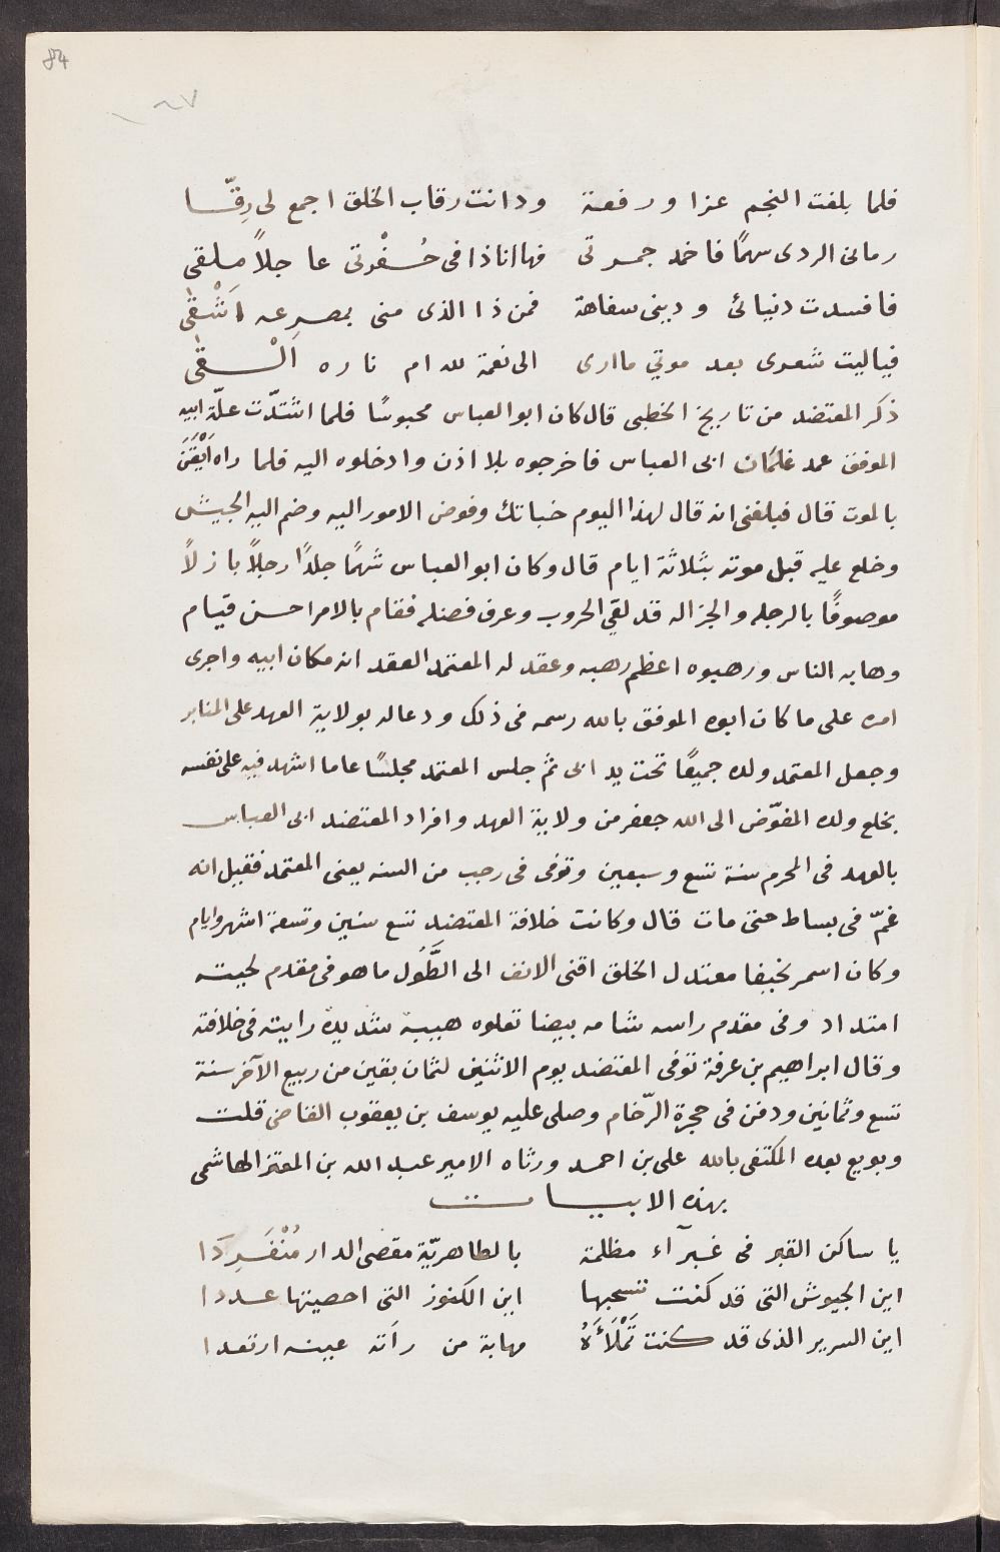 84
فلما بلغت النجم عزا ورفعة ودانت رقاب الخلق اجمع لى رِقّا
رمانى الردى سهمًا فاخمد جمرتى فها انا ذا فى حُفْرتى عاجلاً ملقى
فافسدت دنيائى ودينى سفاهة فمن ذا الذى منى بمصرعه اَشْقىٰ
فياليت شعرى بعد موتي ماارى الى نعمة لله ام ناره اَلْقىٰ
ذكر المعتضد من تاريخ الخطبى قال كان ابوالعباس محبوسًا فلما اشتدّت علّة ابيه
الموفق عمد غلمان ابى العباس فاخرجوه بلا اذن وادخلوه اليه فلما راه اَيْقَنَ
بالموت قال فبلغنى انه قال لهذا اليوم خباتك وفوض الامور اليه وضم اليه الجيش
وخلع عليه قبل موته بثلاثة ايام قال وكان ابوالعباس شهمًا جلدًا رجلًا بازلاً
موصوفًا بالرجله والجزاله قد لقي الحروب وعرف فضله فقام بالامر احسن قيام
وهابه الناس ورهبوه اعظم رهبه وعقد له المعتمد العقد انه مكان ابيه واجرى
امره على ما كان ابوه الموفق بالله رسمه فى ذلك ودعاله بولاية العهد على المنابر
وجعل المعتمد ولده جميعًا تحت يد ابى ثم جلس المعتمد مجلسًا عاما اشهد فيه على نفسه
بخلع ولده المفوّض الى الله جعفر من ولاية العهد وافراد المعتضد ابى العباس
بالعهد فى المحرم سنة تسع وسبعين وتوفى فى رجب من السنه يعنى المعتمد فقيل انه
غمّ فى بساط حتى مات قال وكانت خلافة المعتضد تسع سنين وتسعة اشهر وايام
وكان اسمر نحيفا معتدل الخلق اقنى الانف الى الطَّوُل ماهو فى مقدم لحيته
امتداد وفى مقدم راسه شامه بيضا تعلوه هيبة شديدة رايته فى خلافته
وقال ابراهيم بن عرفة توفى المعتضد يوم الاثنين لثمان بقين من ربيع الآخر سنة
تسع وثمانين ودفن فى حجرة الرّخام وصلى عليه يوسف بن يعقوب القاضى قلت
وبويع بعده المكتفى بالله على بن احمد ورثاه الامير عبد الله بن المعتز الهاشمى
بهذه الابيات
يا ساكن القبر فى غبرآء مظلمة بالطاهريّة مقصى الدار مُنْفَرِدَا
اين الجيوش التى قد كنت تسحبها اين الكنوز التى احصيتها عددا
اين السرير الذى قد كنت تَمْلَأَهُ مهابة من رأته عينه ارتعدا